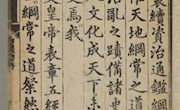 製續資治通鑑綱
惟天地綱常之道
治亂之蹟備諸史
文化成天下
史焉我
皇帝表章五經
綱常之道粲然